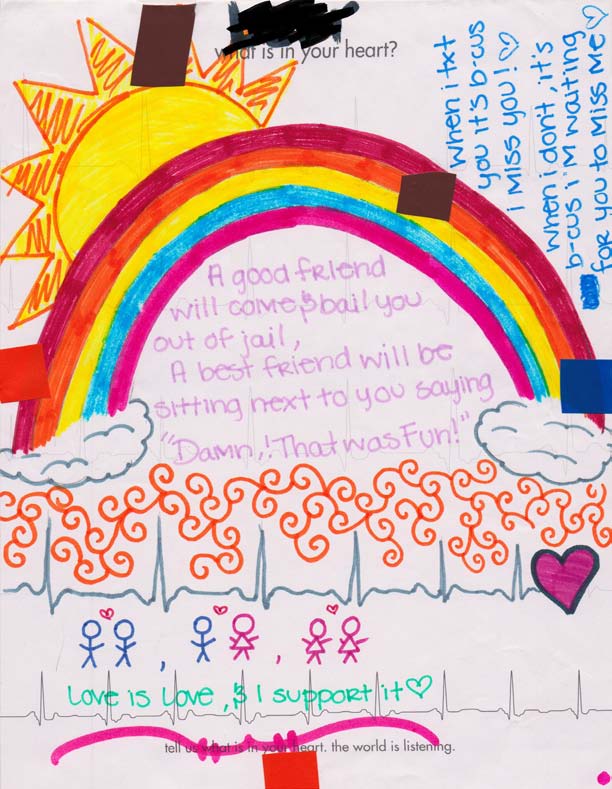 what is in your heart?
when i txt
you it's b-cus
i miss you! ♡
when i don't, it's
b-cus i'm waiting
for you to miss me ♡
A good friend
will come & bail you
out of jail,
A best friend will be
sitting next to you saying
"Damn,! That was Fun!"
Love is Love, & I support it ♡
tell us what is in your heart. the world is listening.